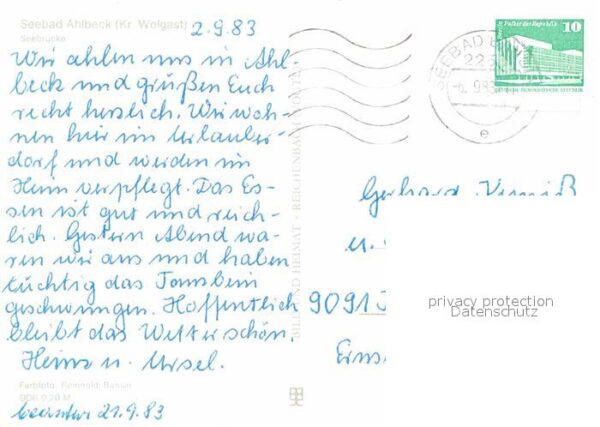 Seebad Ahlbeck (Kr. Wolgast)
Seebrücke
2.9.83
Wir ahlen uns in Ahl-
beck und grüßen Euch
recht herzlich. Wir woh-
nen hier im Urlauber-
dorf und werden im
Heim verpflegt. Das Es-
sen ist gut und reich-
lich. Gestern Abend wa-
ren wir aus und haben
tüchtig das Tanzbein
geschwungen. Hoffentlich
bleibt das Wetter schön.
Heinz u. Ursel.
Farbfoto: Reinhold,
DDR 0,20 M
21.9.83
BILD UND HEIMAT · REICHENBACH
SEEBAD
-6.-9.83
e
Palast der Republik
10
Gerhard
u.
9091
Erns
privacy protection
Datenschutz